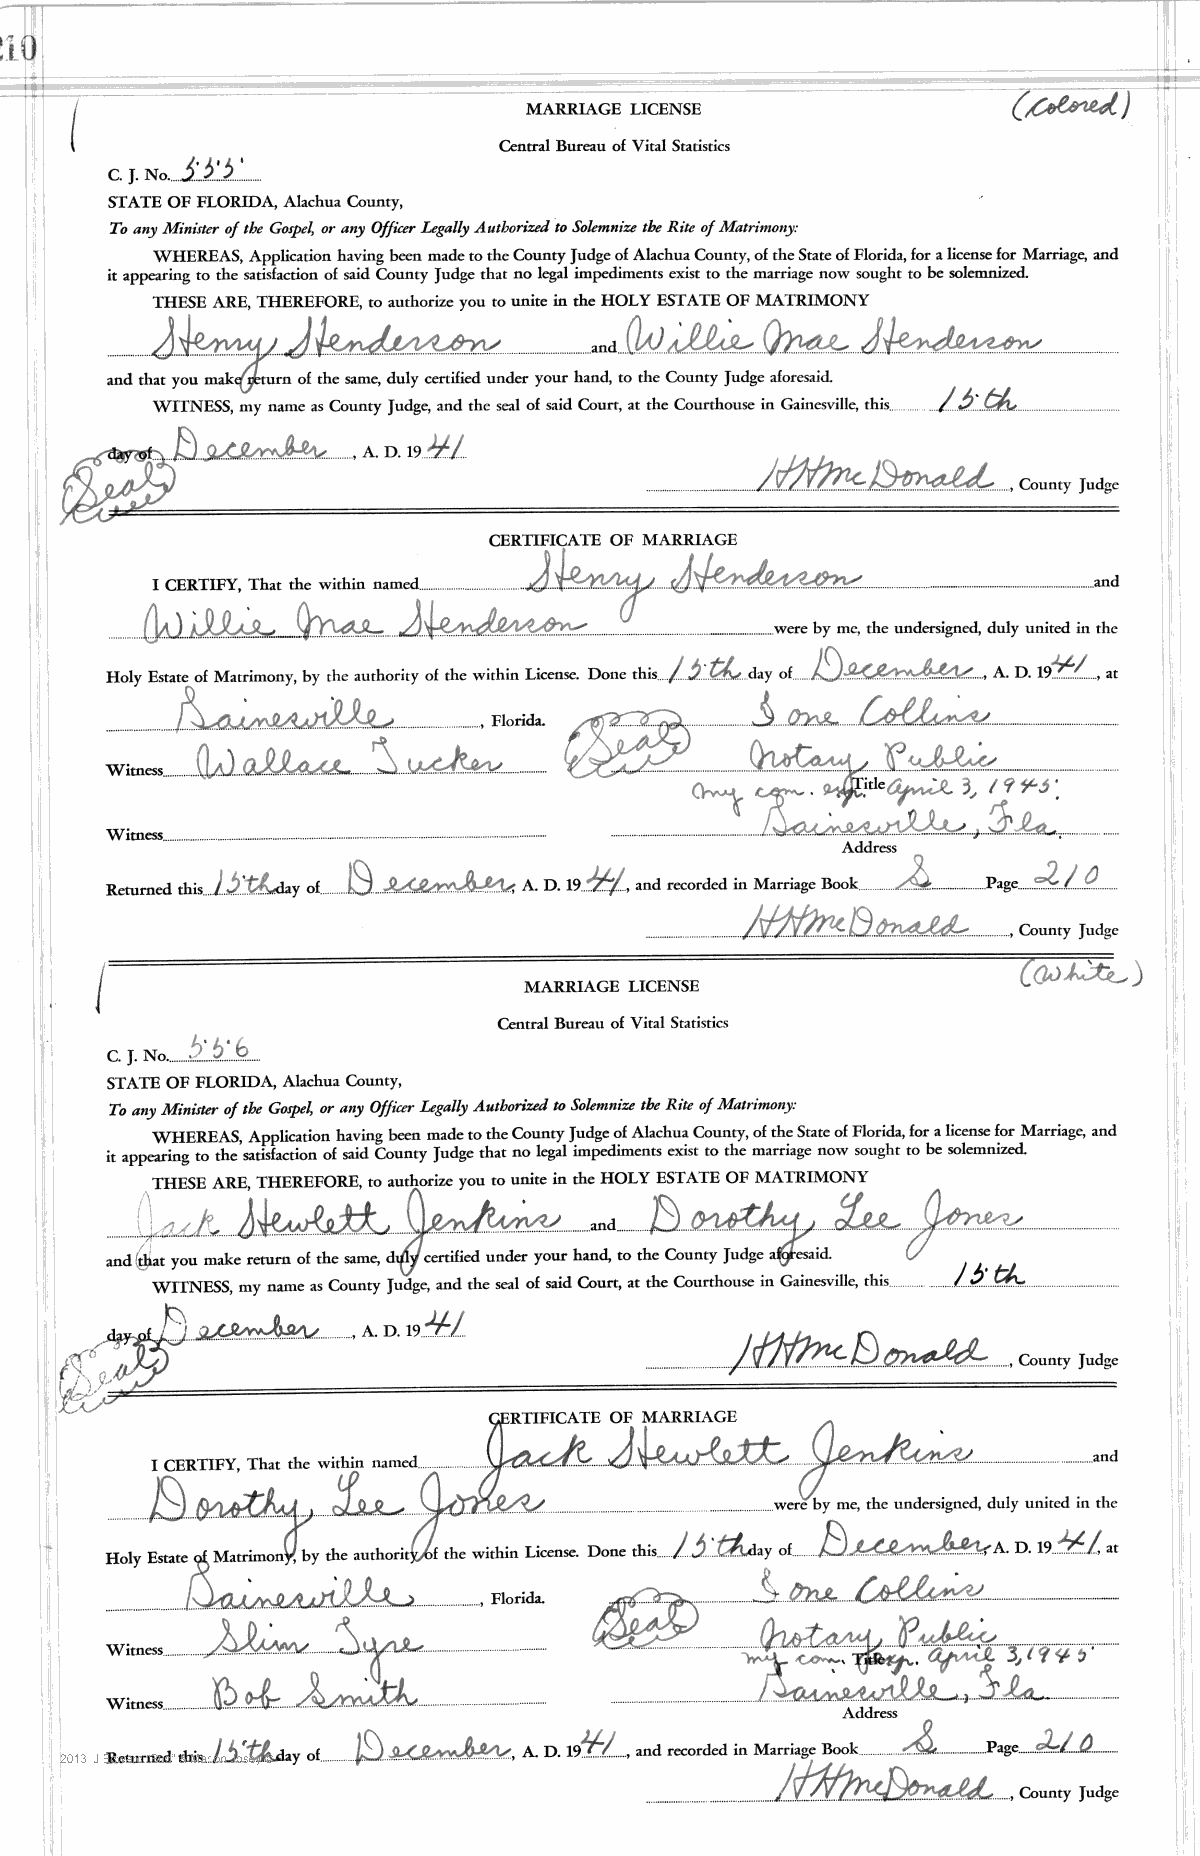 210
MARRIAGE LICENSE (Colored)
Central Bureau of Vital Statistics
C. J. No. 555
STATE OF FLORIDA, Alachua County,
To any Minister of the Gospel, or any Officer Legally Authorized to Solemnize the Rite of Matrimony:
WHEREAS, Application having been made to the County Judge of Alachua County, of the State of Florida, for a license for Marriage, and
it appearing to the satisfaction of said County Judge that no legal impediments exist to the marriage now sought to be solemnized.
THESE ARE, THEREFORE, to authorize you to unite in the HOLY ESTATE OF MATRIMONY
Henry Henderson and Willie Mae Henderson
and that you make return of the same, duly certified under your hand, to the County Judge aforesaid.
WITNESS, my name as County Judge, and the seal of said Court, at the Courthouse in Gainesville, this 15th
day of December, A. D. 1941
Seal
HHMcDonald, County Judge
CERTIFICATE OF MARRIAGE
I CERTIFY, That the within named Henry Henderson and
Willie Mae Henderson were by me, the undersigned, duly united in the
Holy Estate of Matrimony, by the authority of the within License. Done this 15th day of December, A. D. 1941, at
Gainesville, Florida. Seal Ione Collins
Witness Wallace Tucker Notary Public
my com. exp. Title April 3, 1945.
Witness Gainesville, Fla.
Address
Returned this 15th day of December, A. D. 1941, and recorded in Marriage Book S Page 210
HHMcDonald, County Judge
(White)
MARRIAGE LICENSE
Central Bureau of Vital Statistics
C. J. No. 556
STATE OF FLORIDA, Alachua County,
To any Minister of the Gospel, or any Officer Legally Authorized to Solemnize the Rite of Matrimony:
WHEREAS, Application having been made to the County Judge of Alachua County, of the State of Florida, for a license for Marriage, and
it appearing to the satisfaction of said County Judge that no legal impediments exist to the marriage now sought to be solemnized.
THESE ARE, THEREFORE, to authorize you to unite in the HOLY ESTATE OF MATRIMONY
Jack Hewlett Jenkins and Dorothy Lee Jones
and that you make return of the same, duly certified under your hand, to the County Judge aforesaid.
WITNESS, my name as County Judge, and the seal of said Court, at the Courthouse in Gainesville, this 15th
day of December, A. D. 1941
Seal
HHMcDonald, County Judge
CERTIFICATE OF MARRIAGE
I CERTIFY, That the within named Jack Hewlett Jenkins and
Dorothy Lee Jones were by me, the undersigned, duly united in the
Holy Estate of Matrimony, by the authority of the within License. Done this 15th day of December, A. D. 1941, at
Gainesville, Florida. Seal Ione Collins
Witness Slim Tyre Notary Public
my com. Title exp. April 3, 1945
Witness Bob Smith Gainesville, Fla.
Address
2013 J
Returned this 15th day of December, A. D. 1941, and recorded in Marriage Book S Page 210
HHMcDonald, County Judge